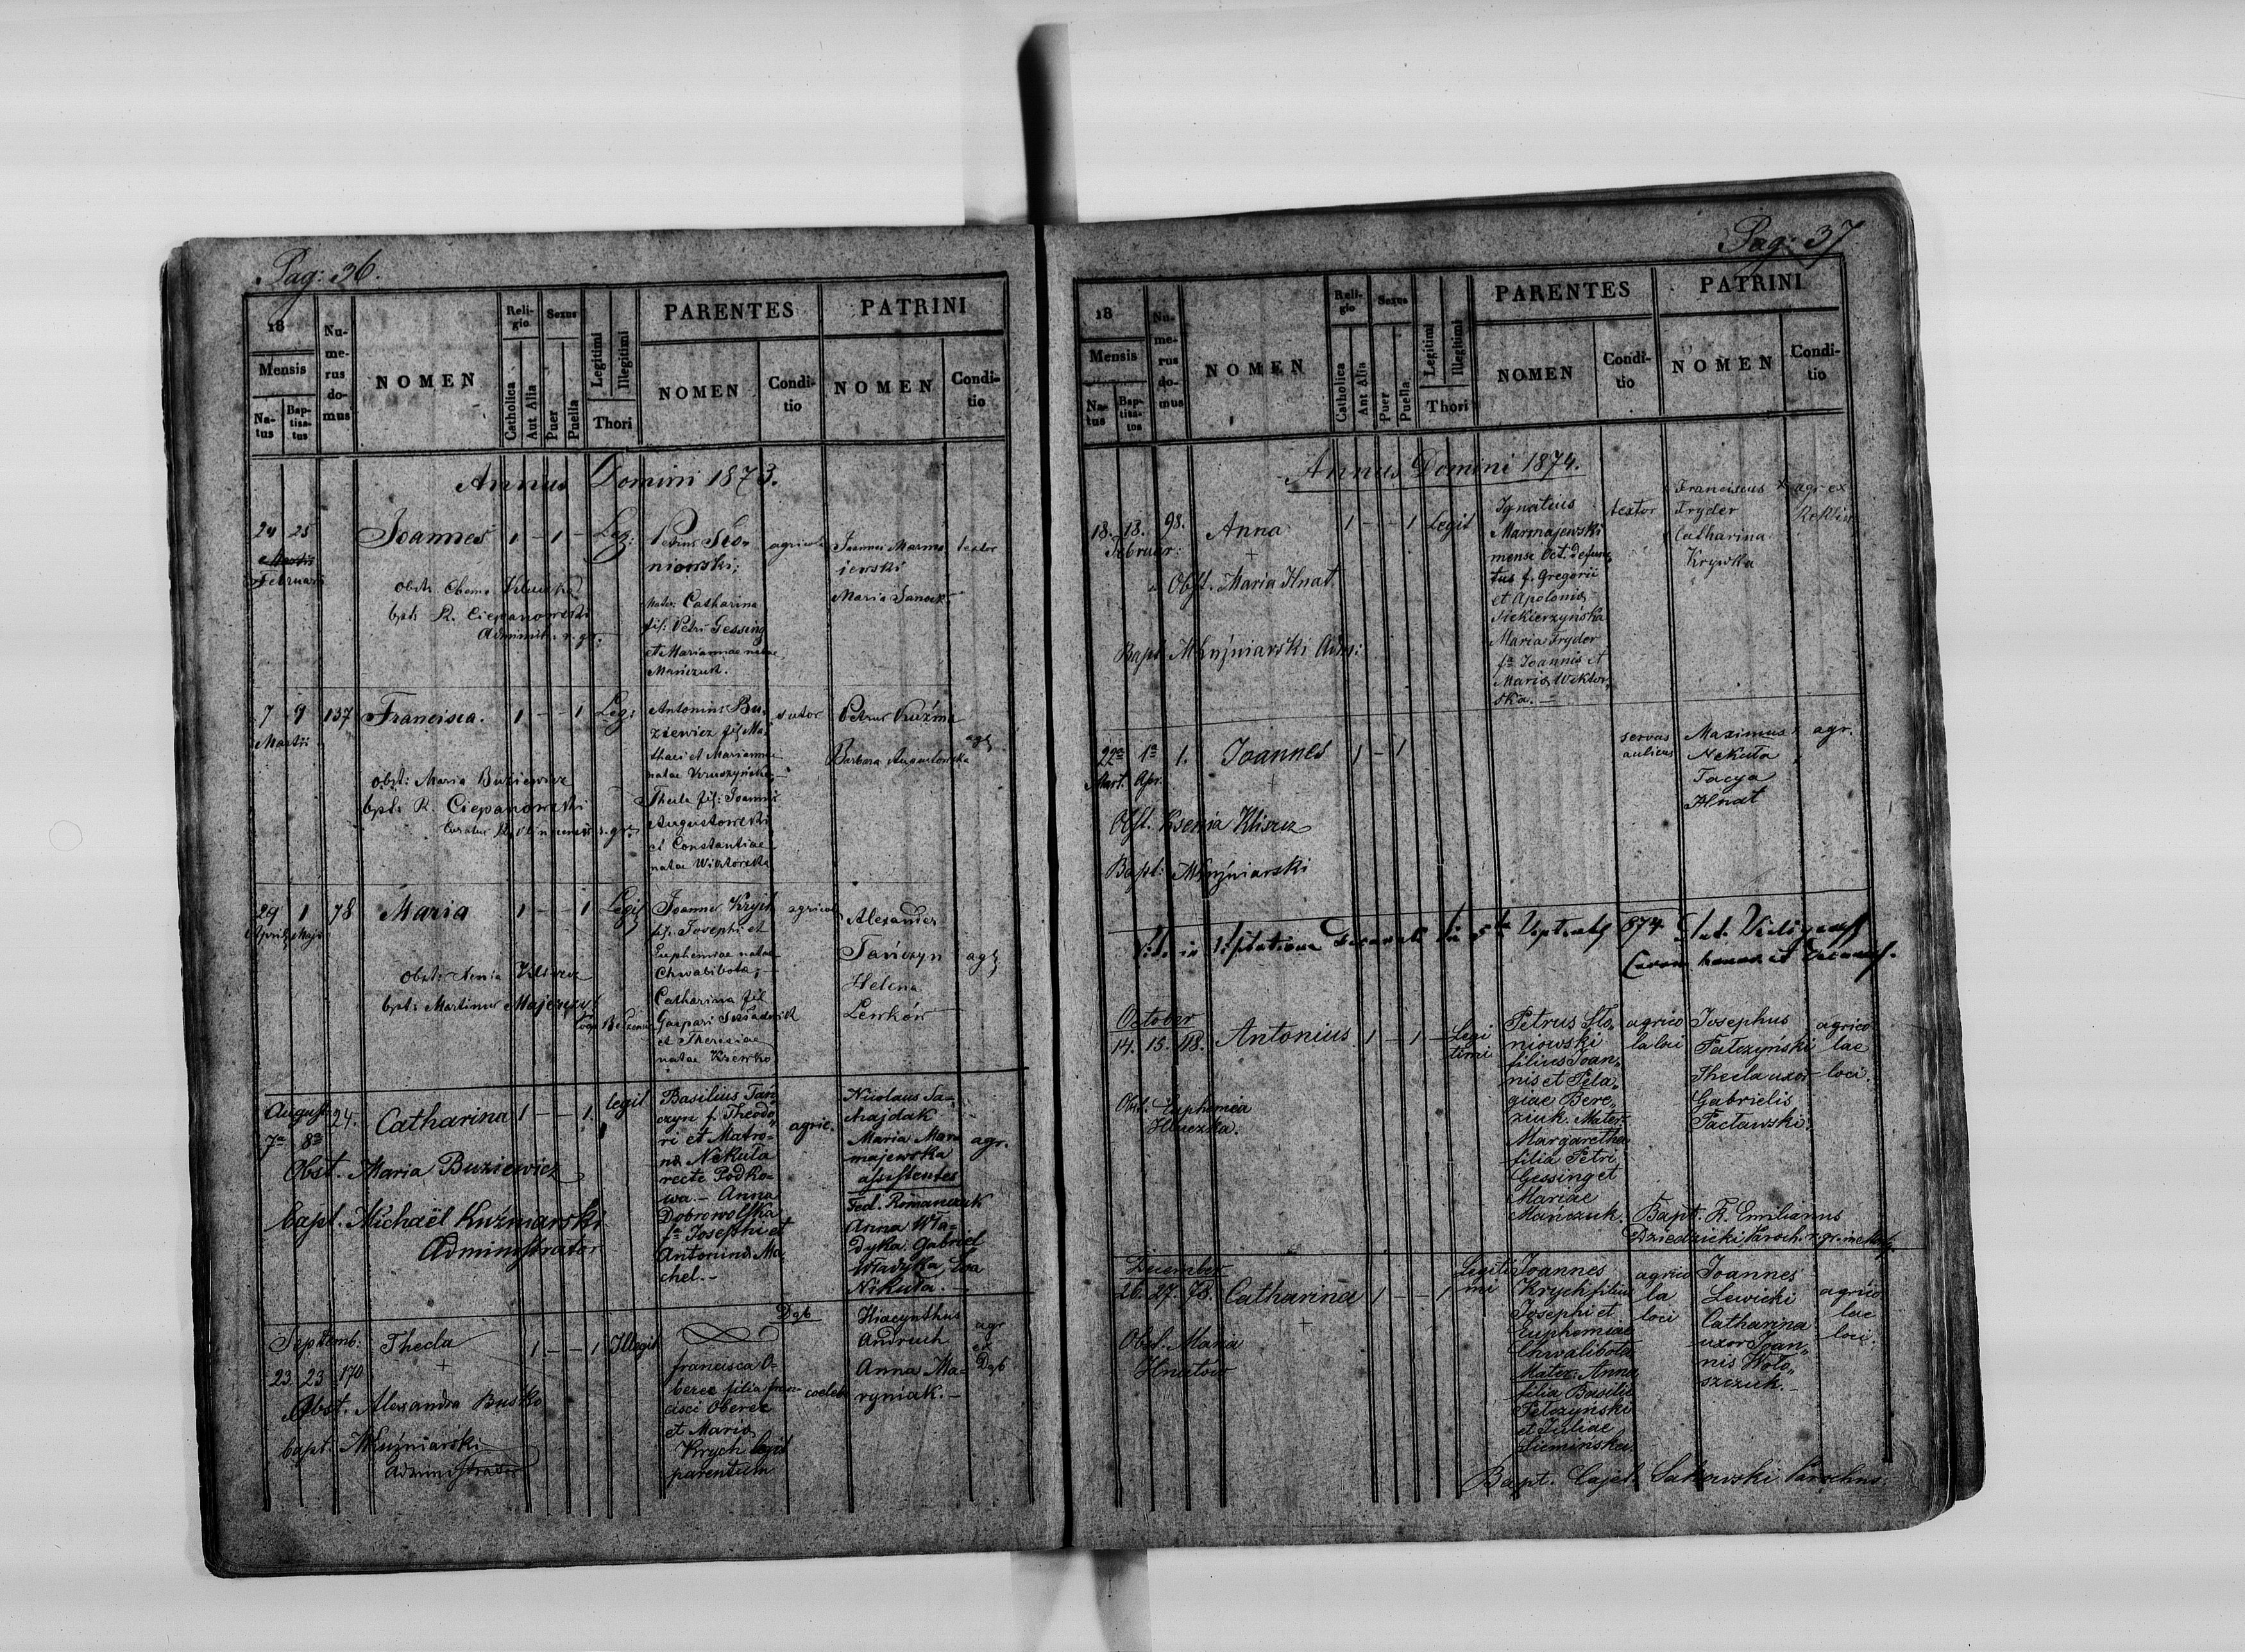 Pag: 36.
18
Mensis
Na-
tus
Bap-
tisa-
tus
Nu-
me-
rus
do-
mus
NOMEN
Reli-
gio
Catholica
Aut Alia
Sexus
Puer
Puella
Legitimi
Illegitimi
Thori
PARENTES
NOMEN
Condi-
tio
PATRINI
NOMEN
Condi-
tio
Annus Domini 1873.
24 25
Februar
Joannes 1 - 1 - Leg:
Obst:
bpt: R. Ciepanowski
Administr. r. gr.
Petrus Sło-
niowski;
mater Catharina
fil: Petri Gessing
et Mariannae natae
Mańczuk.
agricola
Joannes Marma-
jewski
Maria
textor
7 9 137
Martii
Francisca. 1 - - 1 Leg:
Obst: Maria Buziewicz
bpt: R. Ciepanowski
Antonius Bu-
ziewicz fil: Ma-
thaei et Mariannae
natae
Thecla fil: Joannis
Augustowski
et Constantiae
natae Wiktorska
sutor
Petrus Kuźma
Barbara Augustowska
agr
29 1 78
Aprilis Maji
Maria 1 - - 1 Legit
Obst: Xenia
bpt: Martinus Majerczyk
Joannes Krych
fil: Josephi et
Euphemiae natae
Chwalibota; -
Catharina fil
Gaspari
et Theresiae
natae
agricola
Alexander
Tańczyn
Helena
Lewków
agr
August: 24.
7a 8a
Catharina 1 - - 1. legit
Obst. Maria Buziewicz
bapt. Michaël Kuźniarski
Administrator
Basilius Tań-
czyn f. Theodo-
ri et Matro-
na Nekuła
recte Podko-
wa. - Anna
Dobrowolska
fa Josephi et
Antonina Ma-
chel. -
agric.
Nicolaus Ta-
hajdak
Maria Mar-
majewska
assistentes
Fed. Romanczuk
Anna Wła-
dyka Gabriel
Władyka Eva
Nikuła. -
agr.
Septemb:
23 23 170
Thecla 1 - - 1 Illegit
+
Obst. Alexandra Busko
bapt. MKuźniarski
administrator
Dąb
francisca O-
berec filia fran-
cisci Oberec
et Maria
Krych legit
parentum
coelebs
Hiacynthus
Andruch
Anna Ma-
ryniak. -
agr
ex
Dąb
Pag: 37
18
Mensis
Na-
tus
Bap-
tisa-
tus
Nu-
me-
rus
do-
mus
NOMEN
Reli-
gio
Catholica
Aut Alia
Sexus
Puer
Puella
Legitimi
Illegitimi
Thori
PARENTES
NOMEN
Condi-
tio
PATRINI
NOMEN
Condi-
tio
Annus Domini 1874.
18. 18. 98.
Februar:
Anna 1 - - 1 Legit
+
Obst. Maria Hnat
Bapt MKuźniarski Adm:
Ignatius
Marmajewski
mense Oct. defunc-
tus f. Gregorii
et Apolonia
Siekierzyńska
Maria Fryder
fa Joannis et
Maria Wiktor-
ska. -
textor
Franciscus
Fryder
Catharina
Krywka
agr ex
22a 1a 1.
Mart. Apr.
Joannes 1 - 1
+
Obst. Ksenia Kliszcz
Bapt: MKuźniarski
servus
aulicus
Maximus
Nekuła
Tacya
Hnat
agr.
October
14. 15. 118. Antonius 1 - 1 - Legi
timi
Obst. Euphemia
Petrus Sło-
niowski
filius Joan-
nis et Pela-
giae Bere-
ziuk. Mater
Margaretha
filia Petri
Gessing et
Mariae
Mańczuk.
agrico
la loci
Josephus
Pełczyński
Thecla uxor
Gabrielis
Pacławski.
agrico
lae
loci.
Bapt. R. Emilianus
Dziedzicki Paroch. r. gr.
December
26. 27. 78. Catharina 1 - - 1 Legiti
mi
+
Obst. Maria
Hnatow
Joannes
Krych filius
Josephi et
Euphemiae
Chwalibota
Mater Anna
filia Basilii
Pełczyński
et Juliae
Siemińska
agrico
la
loci
Joannes
Lewicki
Catharina
uxor Joan-
nis Woło-
szczuk. -
agrico
lae
loci.
Bapt. Cajet. Sakowski Parochus.